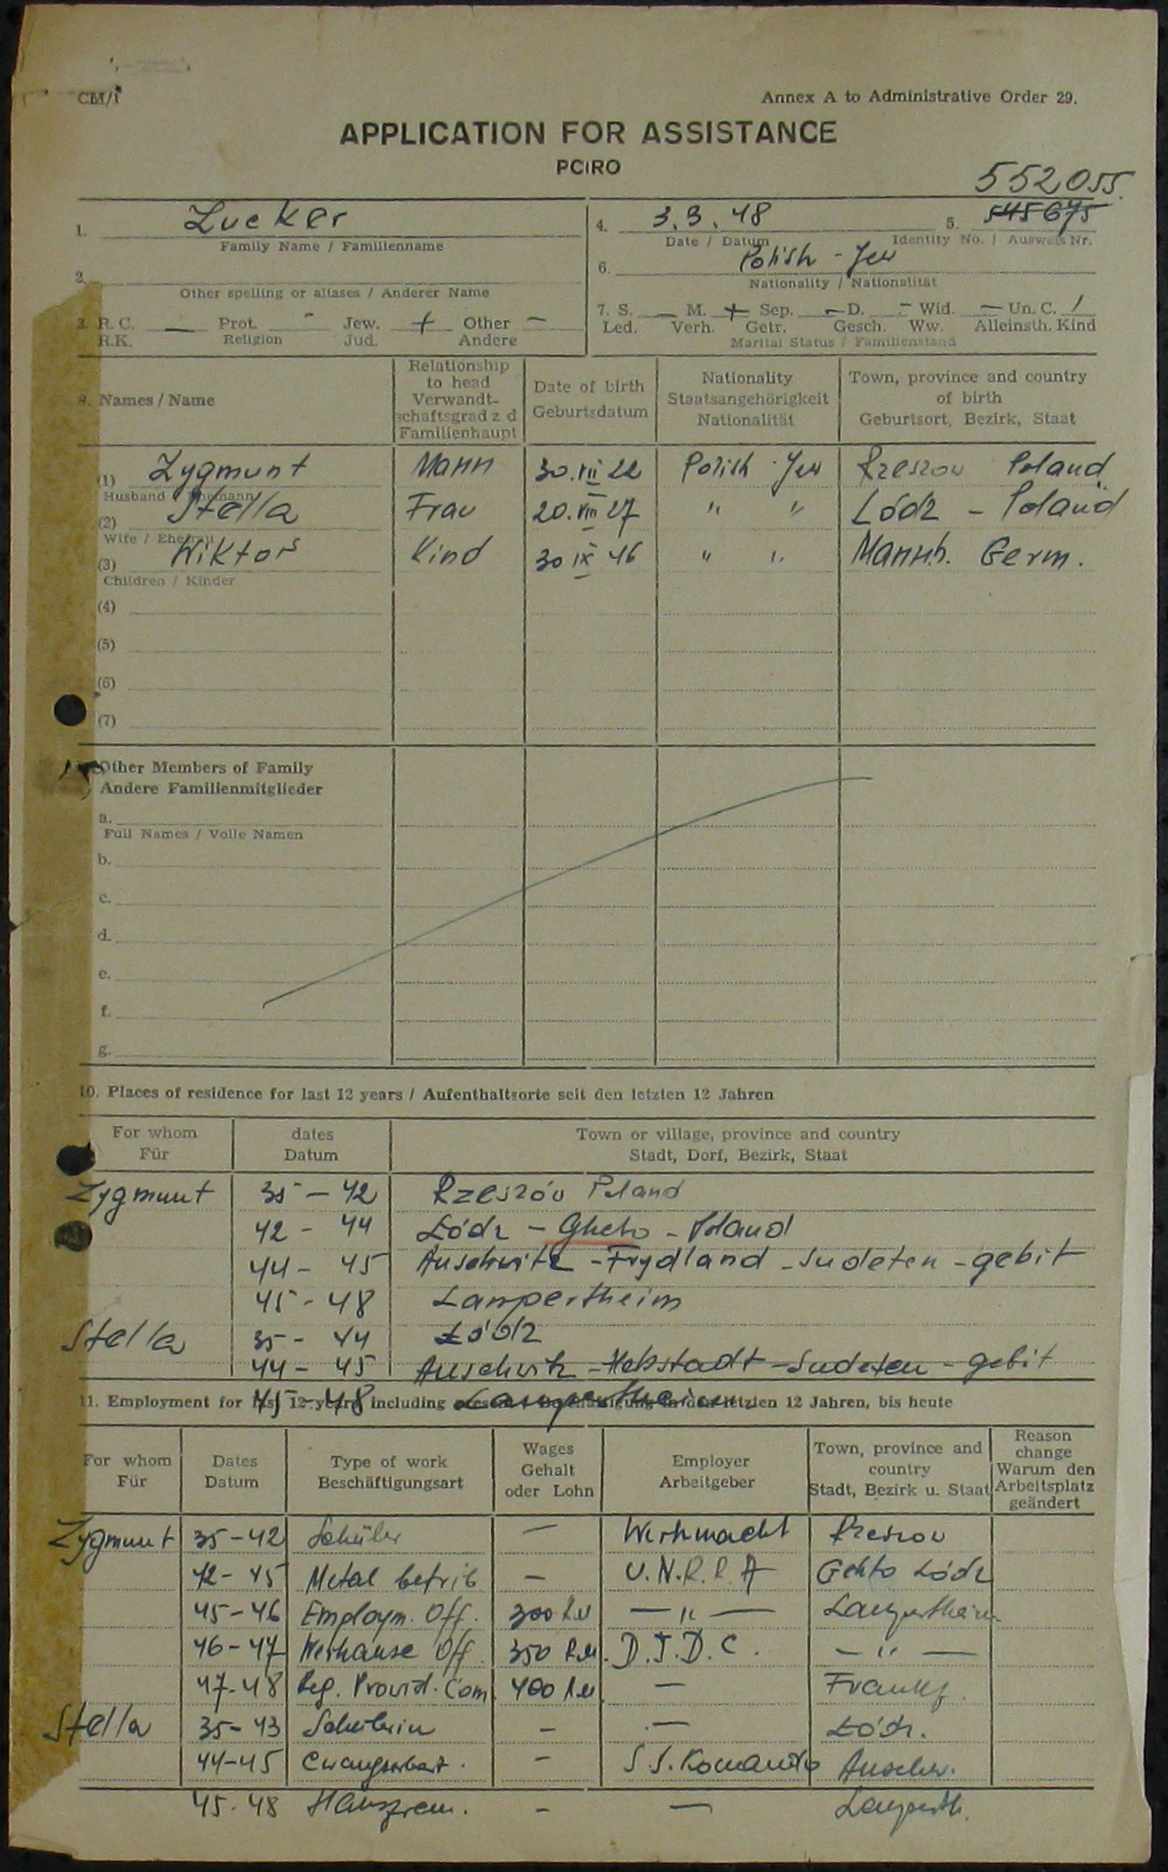 CM/1
Annex A to Administrative Order 29.
APPLICATION FOR ASSISTANCE
PCIRO
552055.
1. Zucker 4. 3.3.48 5. 545675
Family Name / Familienname Date / Datum Identity No. / Ausweis Nr.
2. 6. Polish - Jew
Other spelling or aliases / Anderer Name Nationality / Nationalität
3. R. C. — Prot. - Jew. + Other —
R.K. Religion Jud. Andere
7. S. — M. + Sep. — D. — Wid. — Un. C. /
Led. Verh. Getr. Gesch. Ww. Alleinsth. Kind
Marital Status / Familienstand
8. Names / Name
Relationship to head Verwandt-schaftsgrad z d Familienhaupt
Date of birth Geburtsdatum
Nationality Staatsangehörigkeit Nationalität
Town, province and country of birth Geburtsort, Bezirk, Staat
(1) Zygmunt Mann 30.VII 22 Polish Jew Rzeszov Poland
Husband / Ehemann
(2) Stella Frau 20.VIII 27 " " Lódz - Poland
Wife / Ehefrau
(3) Wiktors Kind 30 IX 46 " " Mannh. Germ.
Children / Kinder
(4)
(5)
(6)
(7)
Other Members of Family
Andere Familienmitglieder
a.
Full Names / Volle Namen
b.
c.
d.
e.
f.
g.
10. Places of residence for last 12 years / Aufenthaltsorte seit den letzten 12 Jahren
For whom Für
dates Datum
Town or village, province and country Stadt, Dorf, Bezirk, Staat
Zygmunt 35 - 42 Rzeszóv Poland
42 - 44 Łódz - Gheto - Poland
44 - 45 Auschwitz - Frydland - Sudeten - gebit
45 - 48 Lampertheim
Stella 35 - 44 Łódz
44 - 45 Auschwitz - Hebstadt - Sudeten - gebit
45 - 48 Lampertheim
11. Employment for last 12 years including letzten 12 Jahren, bis heute
For whom Für
Dates Datum
Type of work Beschäftigungsart
Wages Gehalt oder Lohn
Employer Arbeitgeber
Town, province and country Stadt, Bezirk u. Staat
Reason change Warum den Arbeitsplatz geändert
Zygmunt 35-42 Schüler — Werhmacht Rzeszov
42-45 Metal betrib — U.N.R.R.A Gehto Łódz
45-46 Employm. Off. 300 RM — " — Lampertheim
46-47 Werhause Off. 350 RM. D.J.D.C. — " —
47-48 Reg. Provid. Com. 400 RM — Frankf.
Stella 35-43 Schülerin — — Łódz.
44-45 Cwangsarbeit. — S.S. Komando Auschw.
45-48 Hausfrau. — — Lamperth.